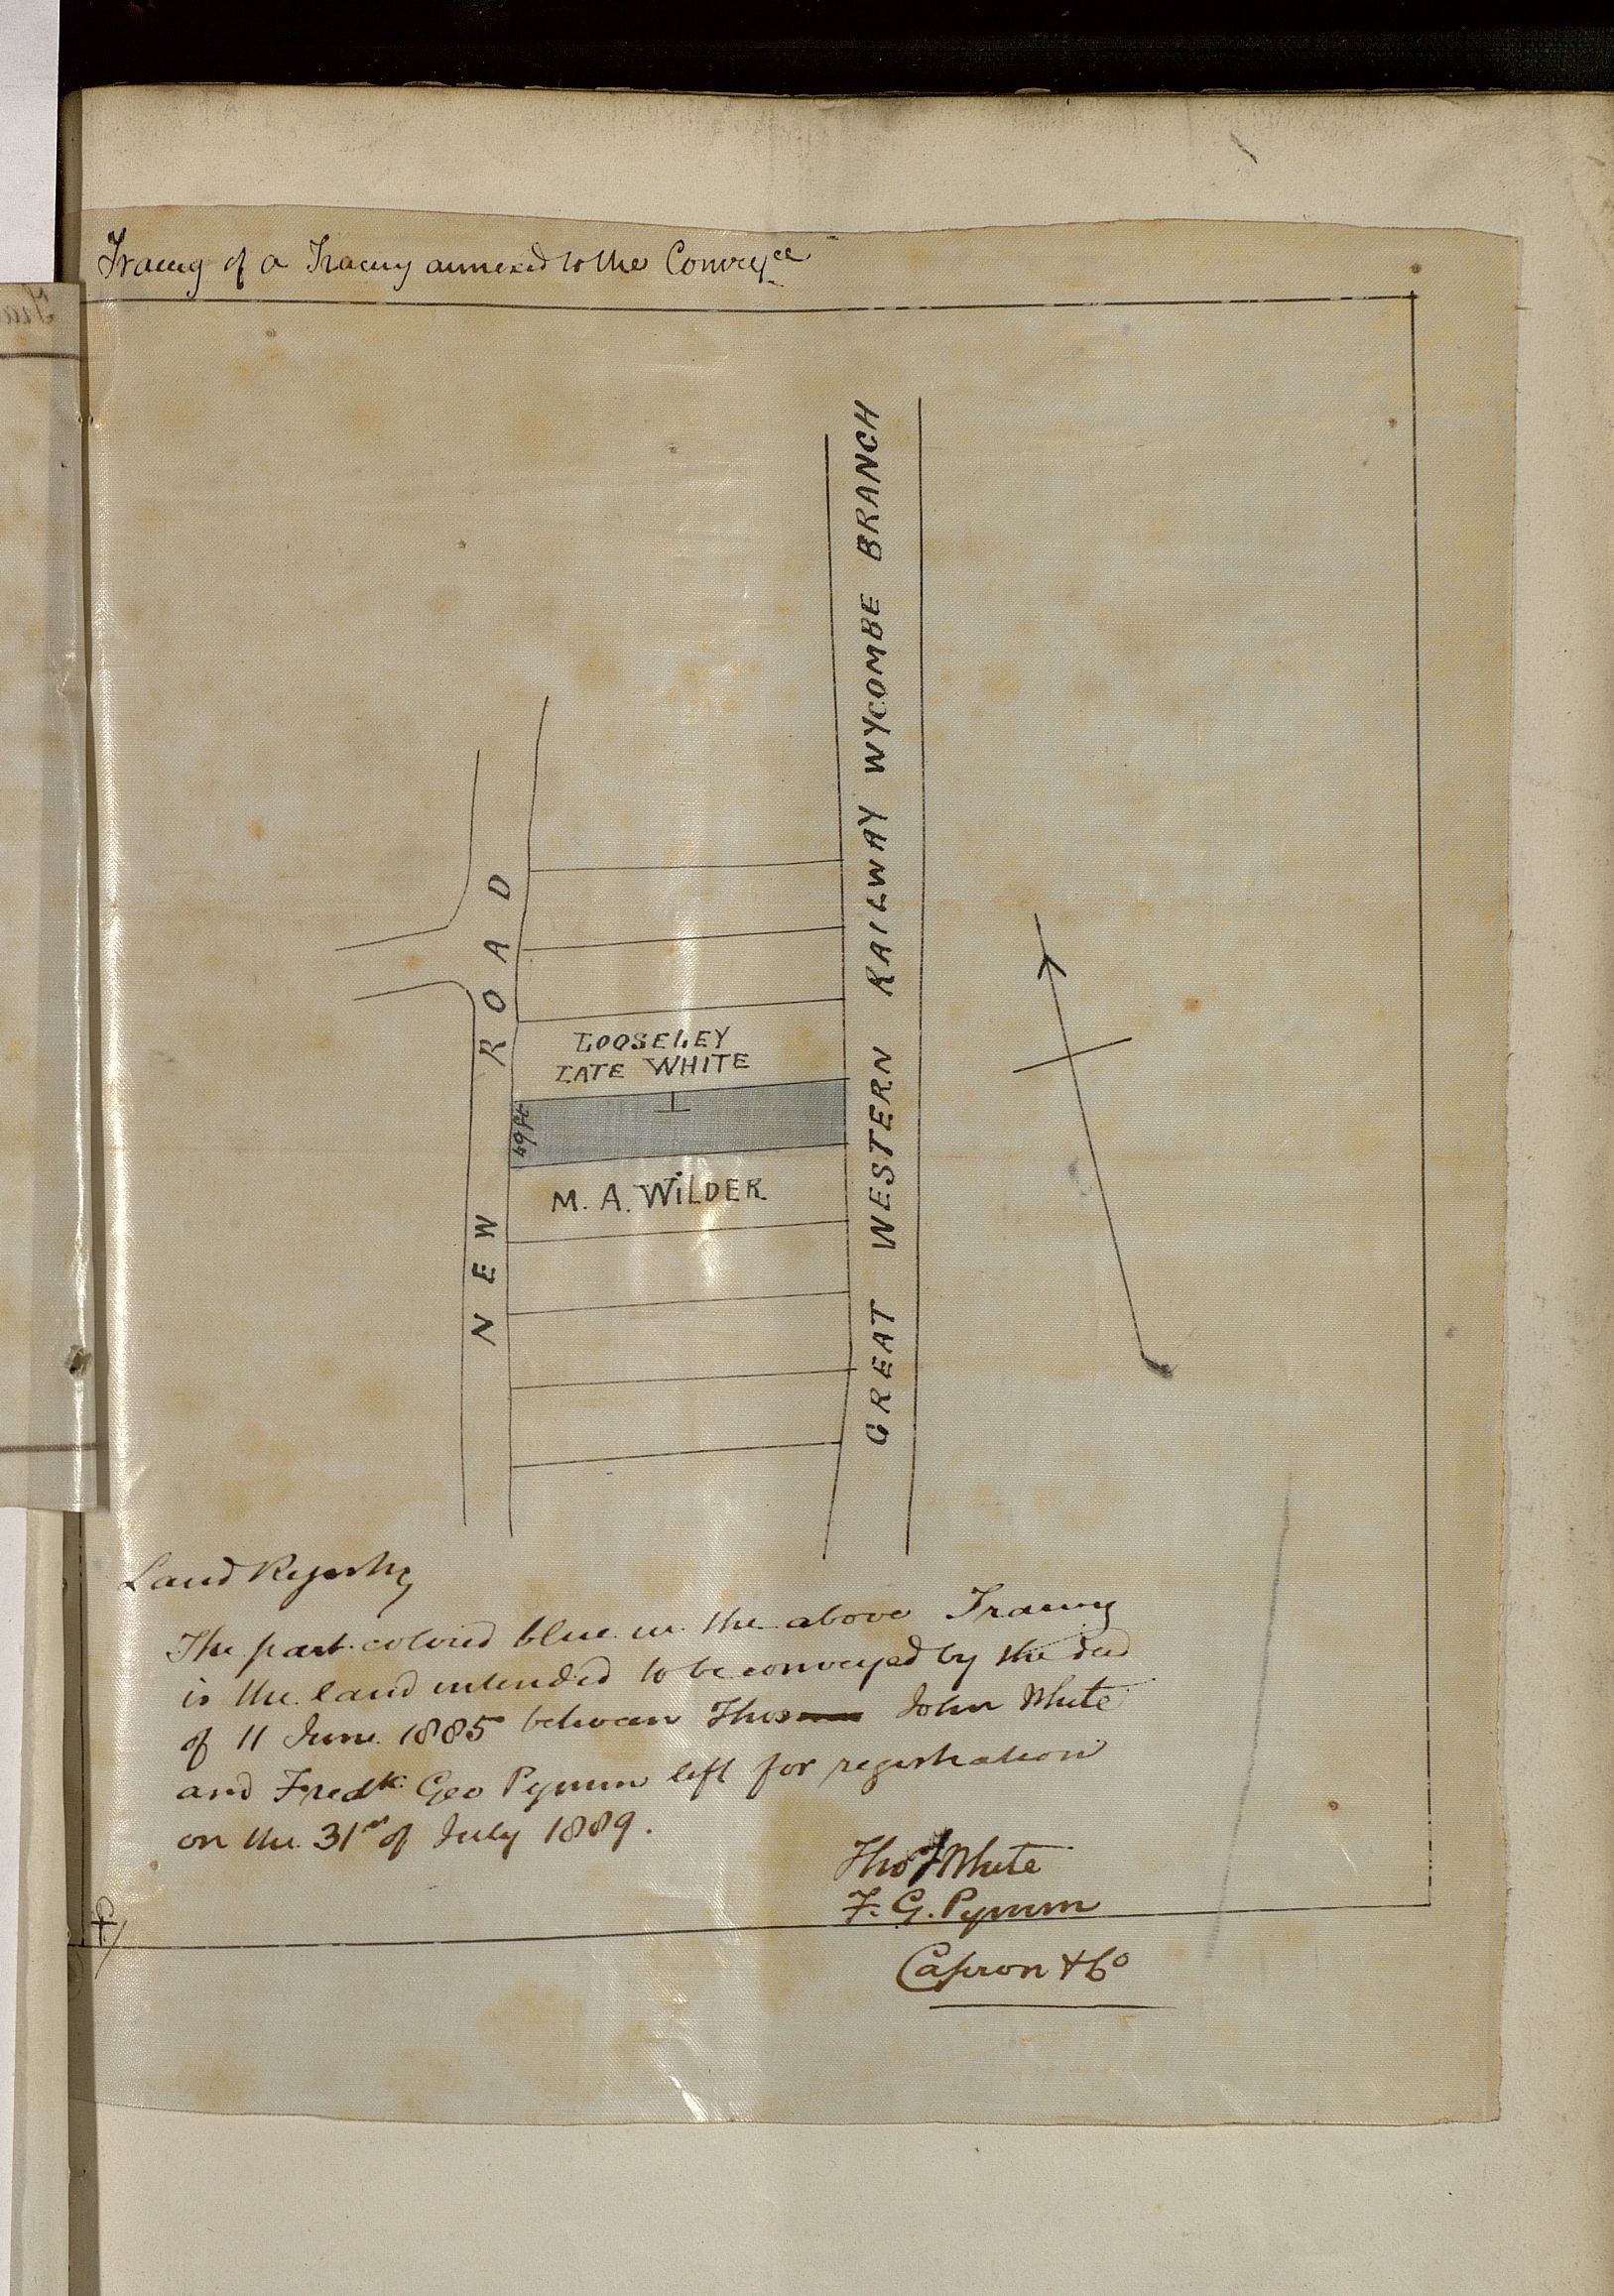 Tracing of a Tracing annexed to the Convey^ce
GREAT WESTERN RAILWAY WYCOMBE BRANCH
NEW ROAD
LOOSELEY
LATE WHITE
49 ft
M. A. WILDER
Land Registry
The part colored blue in the above Tracing
is the land intended to be conveyed by the deed
of 11 June 1885 between Thos John White
and Fredk Geo Pymm left for registration
on the 31st of July 1889.
Thos J White
F. G. Pymm
Capron & Co